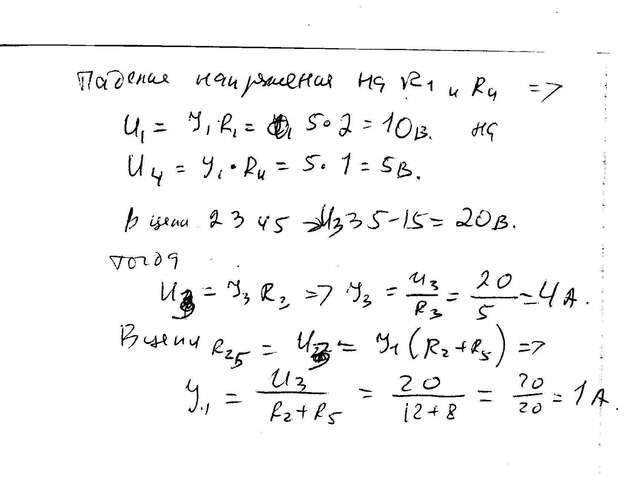 Падения напряжения на R1 и R4 =>
U₁ = У₁·R₁ = 5·2 = 10 в. на
U₄ = У₁·R₄ = 5·1 = 5 в.
В цепи 2345 U₃ 35-15 = 20 в.
тогда
U₃ = У₃ R₃ => У₃ = U₃/R₃ = 20/5 = 4 А.
В цепи R₂₅ = U₃ = У₁(R₂+R₅) =>
У₁ = U₃/(R₂+R₅) = 20/(12+8) = 20/20 = 1 А.